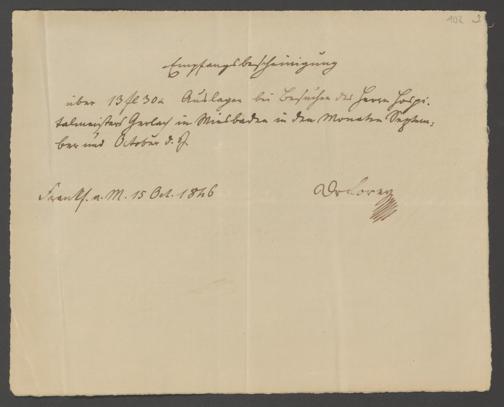 102
Empfangsbescheinigung
über 13 fl 30 x Auslagen bei Besuchen des Herrn Hospi-
talmeisters Gerlach in Wiesbaden in den Monaten Septem-
ber und October d. J.
Frankf. a. M. 15 Oct. 1846
Dr Lorey